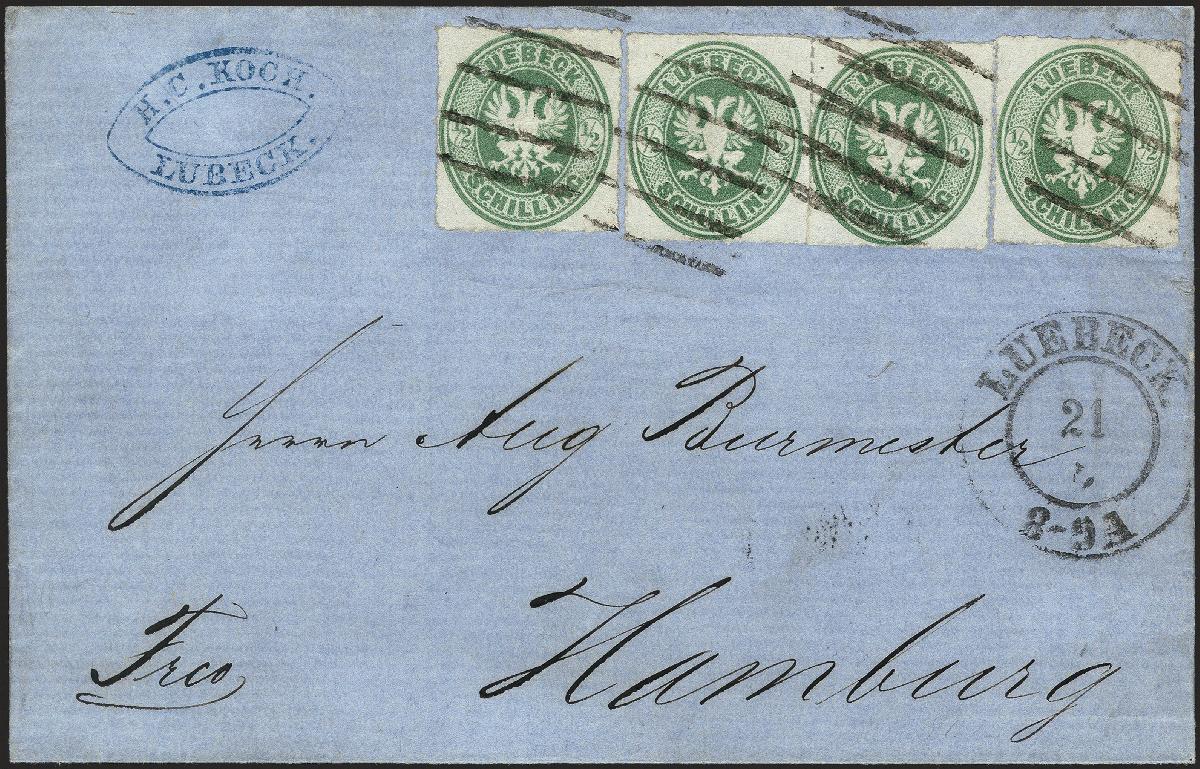 H.C.KOCH.
LÜBECK.
LUEBECK ½ ½ SCHILLING
LUEBECK ½ ½ SCHILLING
LUEBECK ½ ½ SCHILLING
LUEBECK ½ ½ SCHILLING
LUEBECK.
21
8-9A
Herrn Aug Burmester
Hamburg
Frco